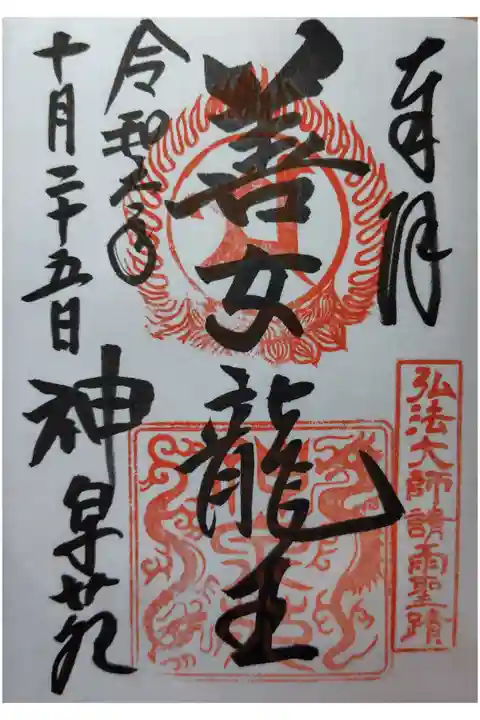 奉拝
弘法大師請雨聖蹟
善女龍王
令和 年
十月二十五日
神泉苑